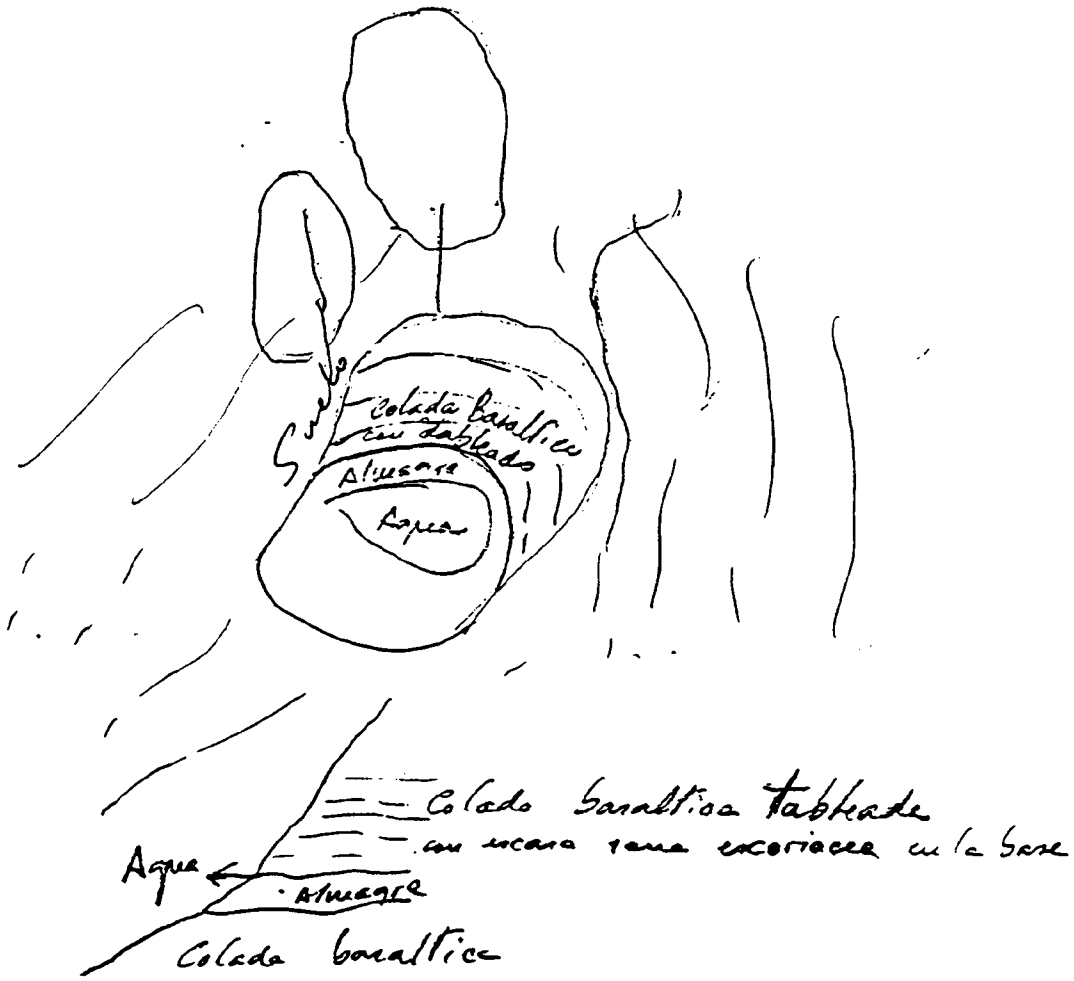 Suelo
Colada Basaltica
con tableado
Almagre
Agua
Colada basaltica tableada
con escasa zona escoriacea en la base
Agua
Almagre
Colada basaltica